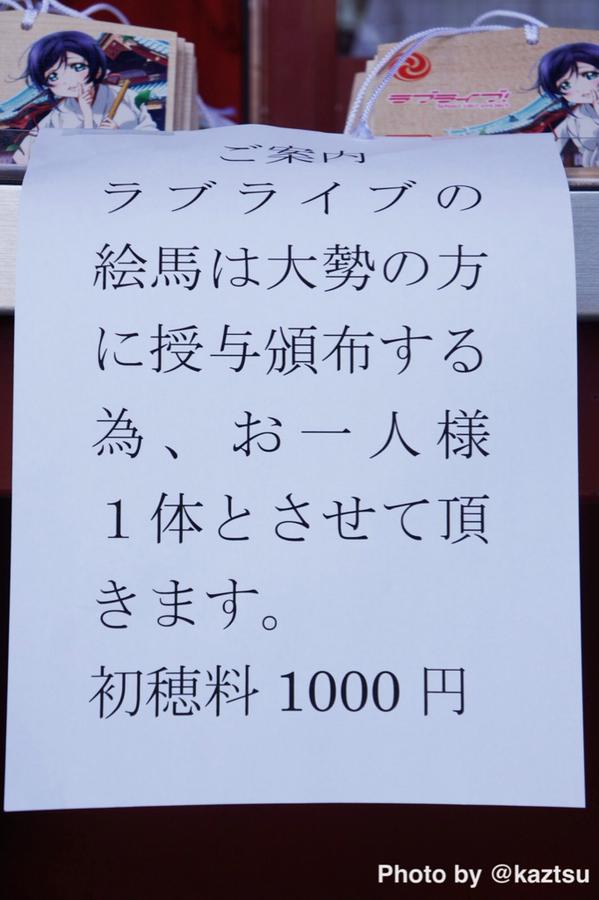 ラブライブ!
ご案内
ラブライブの
絵馬は大勢の方
に授与頒布する
為、お一人様
1体とさせて頂
きます。
初穂料 1000 円
Photo by @kaztsu